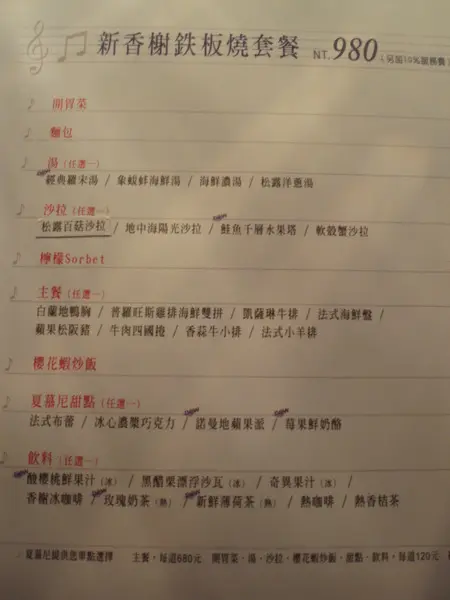 新香榭鉄板燒套餐 NT.980 (另加10%服務費)
開胃菜
麵包
湯 (任選一)
經典羅宋湯 / 象蚌海鮮湯 / 海鮮濃湯 / 松露洋蔥湯
沙拉 (任選一)
松露百菇沙拉 / 地中海陽光沙拉 / 鮭魚千層水果塔 / 軟殼蟹沙拉
檸檬Sorbet
主餐 (任選一)
白蘭地鴨胸 / 普羅旺斯雞排海鮮雙拼 / 凱薩琳牛排 / 法式海鮮盤 /
蘋果松阪豬 / 牛肉四國捲 / 香蒜牛小排 / 法式小羊排
櫻花蝦炒飯
夏慕尼甜點 (任選一)
法式布蕾 / 冰心濃漿巧克力 / 諾曼地蘋果派 / 莓果鮮奶酪
飲料 (任選一)
酸櫻桃鮮果汁 (冰) / 黑醋栗漂浮沙瓦 (冰) / 奇異果汁 (冰) /
香榭冰咖啡 / 玫瑰奶茶 (熱) / 新鮮薄荷茶 (熱) / 熱咖啡 / 熱香桔茶
夏慕尼提供您單點選擇 主餐,每道680元 開胃菜、湯、沙拉、櫻花蝦炒飯、甜點、飲料,每道120元